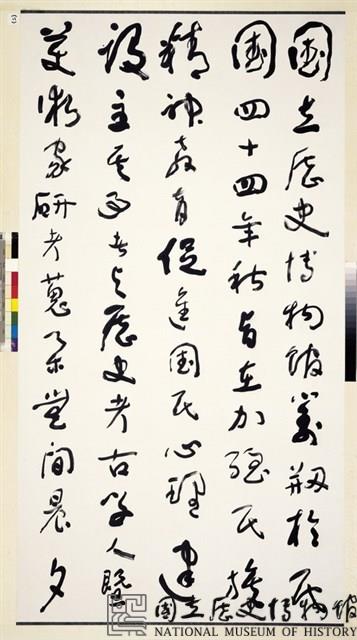 國立歷史博物館籌剏於民
國四十四年秋旨在加強民族
精神教育促進國民心理建
設主其事者与歷史考古學人暨
美術家研考蒐集間晨夕
國立歷史博物館
NATIONAL MUSEUM OF HISTORY